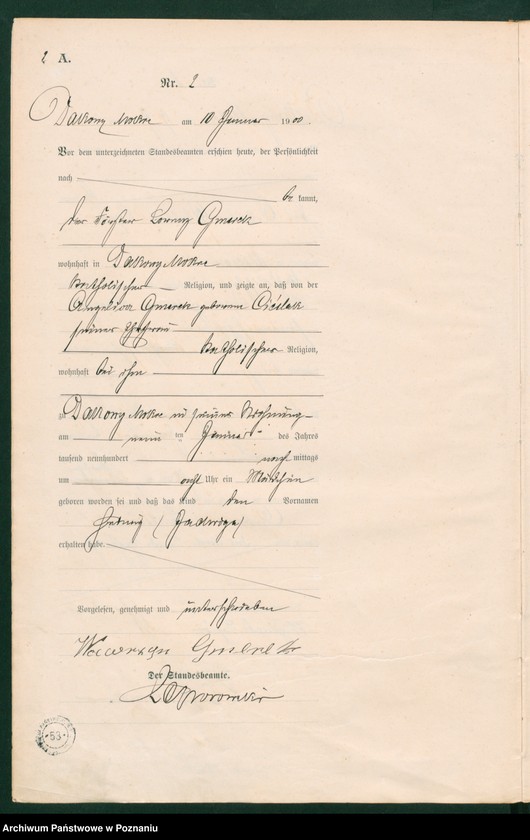 2 A.
Nr. 2
Dakowy Mokre am 10 Januar 1900.
Vor dem unterzeichneten Standesbeamten erschien heute, der Persönlichkeit
nach
be kannt,
der Förster Lorenz Gmerek
wohnhaft in Dakowy Mokre
katholischer Religion, und zeigte an, daß von der
Angelika Gmerek geborene Cieślak
seiner Ehefrau
katholischer Religion,
wohnhaft bei ihm
zu Dakowy Mokre in seiner Wohnung
am neun ten Januar des Jahres
tausend neunhundert nach mittags
um acht Uhr ein Mädchen
geboren worden sei und daß das Kind den Vornamen
Hedwig (Jadwiga)
erhalten habe.
Vorgelesen, genehmigt und unterschrieben
Wawrzyn Gmerek
Der Standesbeamte.
53
Archiwum Państwowe w Poznaniu